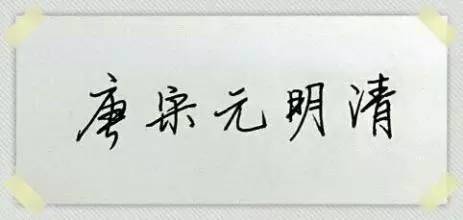 唐宋元明清